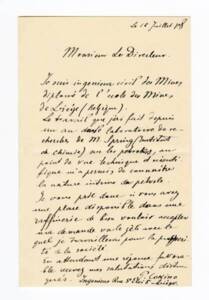 Le 15 Juillet
Monsieur Le Directeur
Je suis ingénieur civil des Mines
diplômé de l'école des Mines
de Liège (Belgique).
Le travail que j'ai fait depuis
un an dans laboratoire de re-
cherches de M. Spring (Institut
de chimie) sur les pétroles, au
point de vue technique et scienti-
fique m'a permis de connaître
la nature intime du pétrole.
Je vous prie donc si vous avez
une place disponible dans une
raffinerie de bon vouloir accepter
ma demande
quel je travaillerais pour la prospéri-
té de la société
En attendant une réponse favora-
ble recevez mes salutations distin-
guées.
Ingénieur Rue Liège